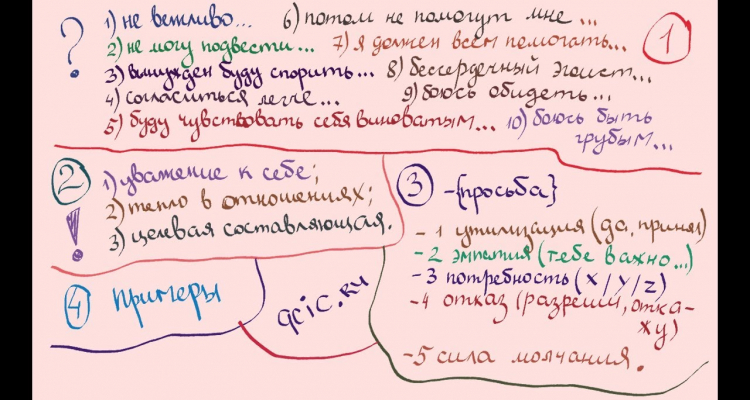 ?
1) не вежливо...
2) не могу подвести...
3) вынужден буду спорить...
4) согласиться легче...
5) буду чувствовать себя виноватым...
6) потом не помогут мне...
7) я должен всем помогать...
8) бессердечный эгоист...
9) боюсь обидеть...
10) боюсь быть
грубым...
1
2
!
1) уважение к себе;
2) тепло в отношениях;
3) целевая составляющая.
3
-{просьба}
- 1 утилизация (да, принял)
- 2 эмпатия (тебе важно...)
- 3 потребность (x/y/z)
- 4 отказ (разреши, отка-
жу)
- 5 сила молчания.
4
примеры
qcic.ru